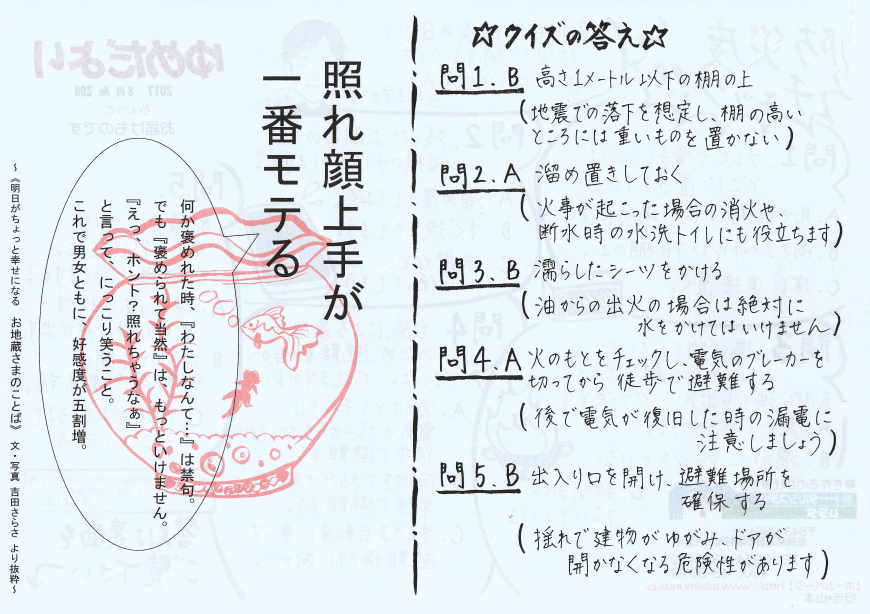 ☆クイズの答え☆
問1.B 高さ1メートル以下の棚の上
(地震での落下を想定し、棚の高い
ところには重いものを置かない)
問2.A 溜め置きしておく
(火事が起こった場合の消火や、
断水時の水洗トイレにも役立ちます)
問3.B 濡らしたシーツをかける
(油からの出火の場合は絶対に
水をかけてはいけません)
問4.A 火のもとをチェックし、電気のブレーカーを
切ってから徒歩で避難する
(後で電気が復旧した時の漏電に
注意しましょう)
問5.B 出入り口を開け、避難場所を
確保する
(揺れで建物がゆがみ、ドアが
開かなくなる危険性があります)
照れ顔上手が
一番モテる
何か褒められた時、『わたしなんて…』は禁句。
でも『褒められて当然』は、もっといけません。
『えっ、ホント?照れちゃうなぁ』
と言って、にっこり笑うこと。
これで男女ともに、好感度が五割増。
~《明日がちょっと幸せになる お地蔵さまのことば》 文・写真 吉田さらさ より抜粋~
ゆめだより
2017 8月 No 208
お届けものです